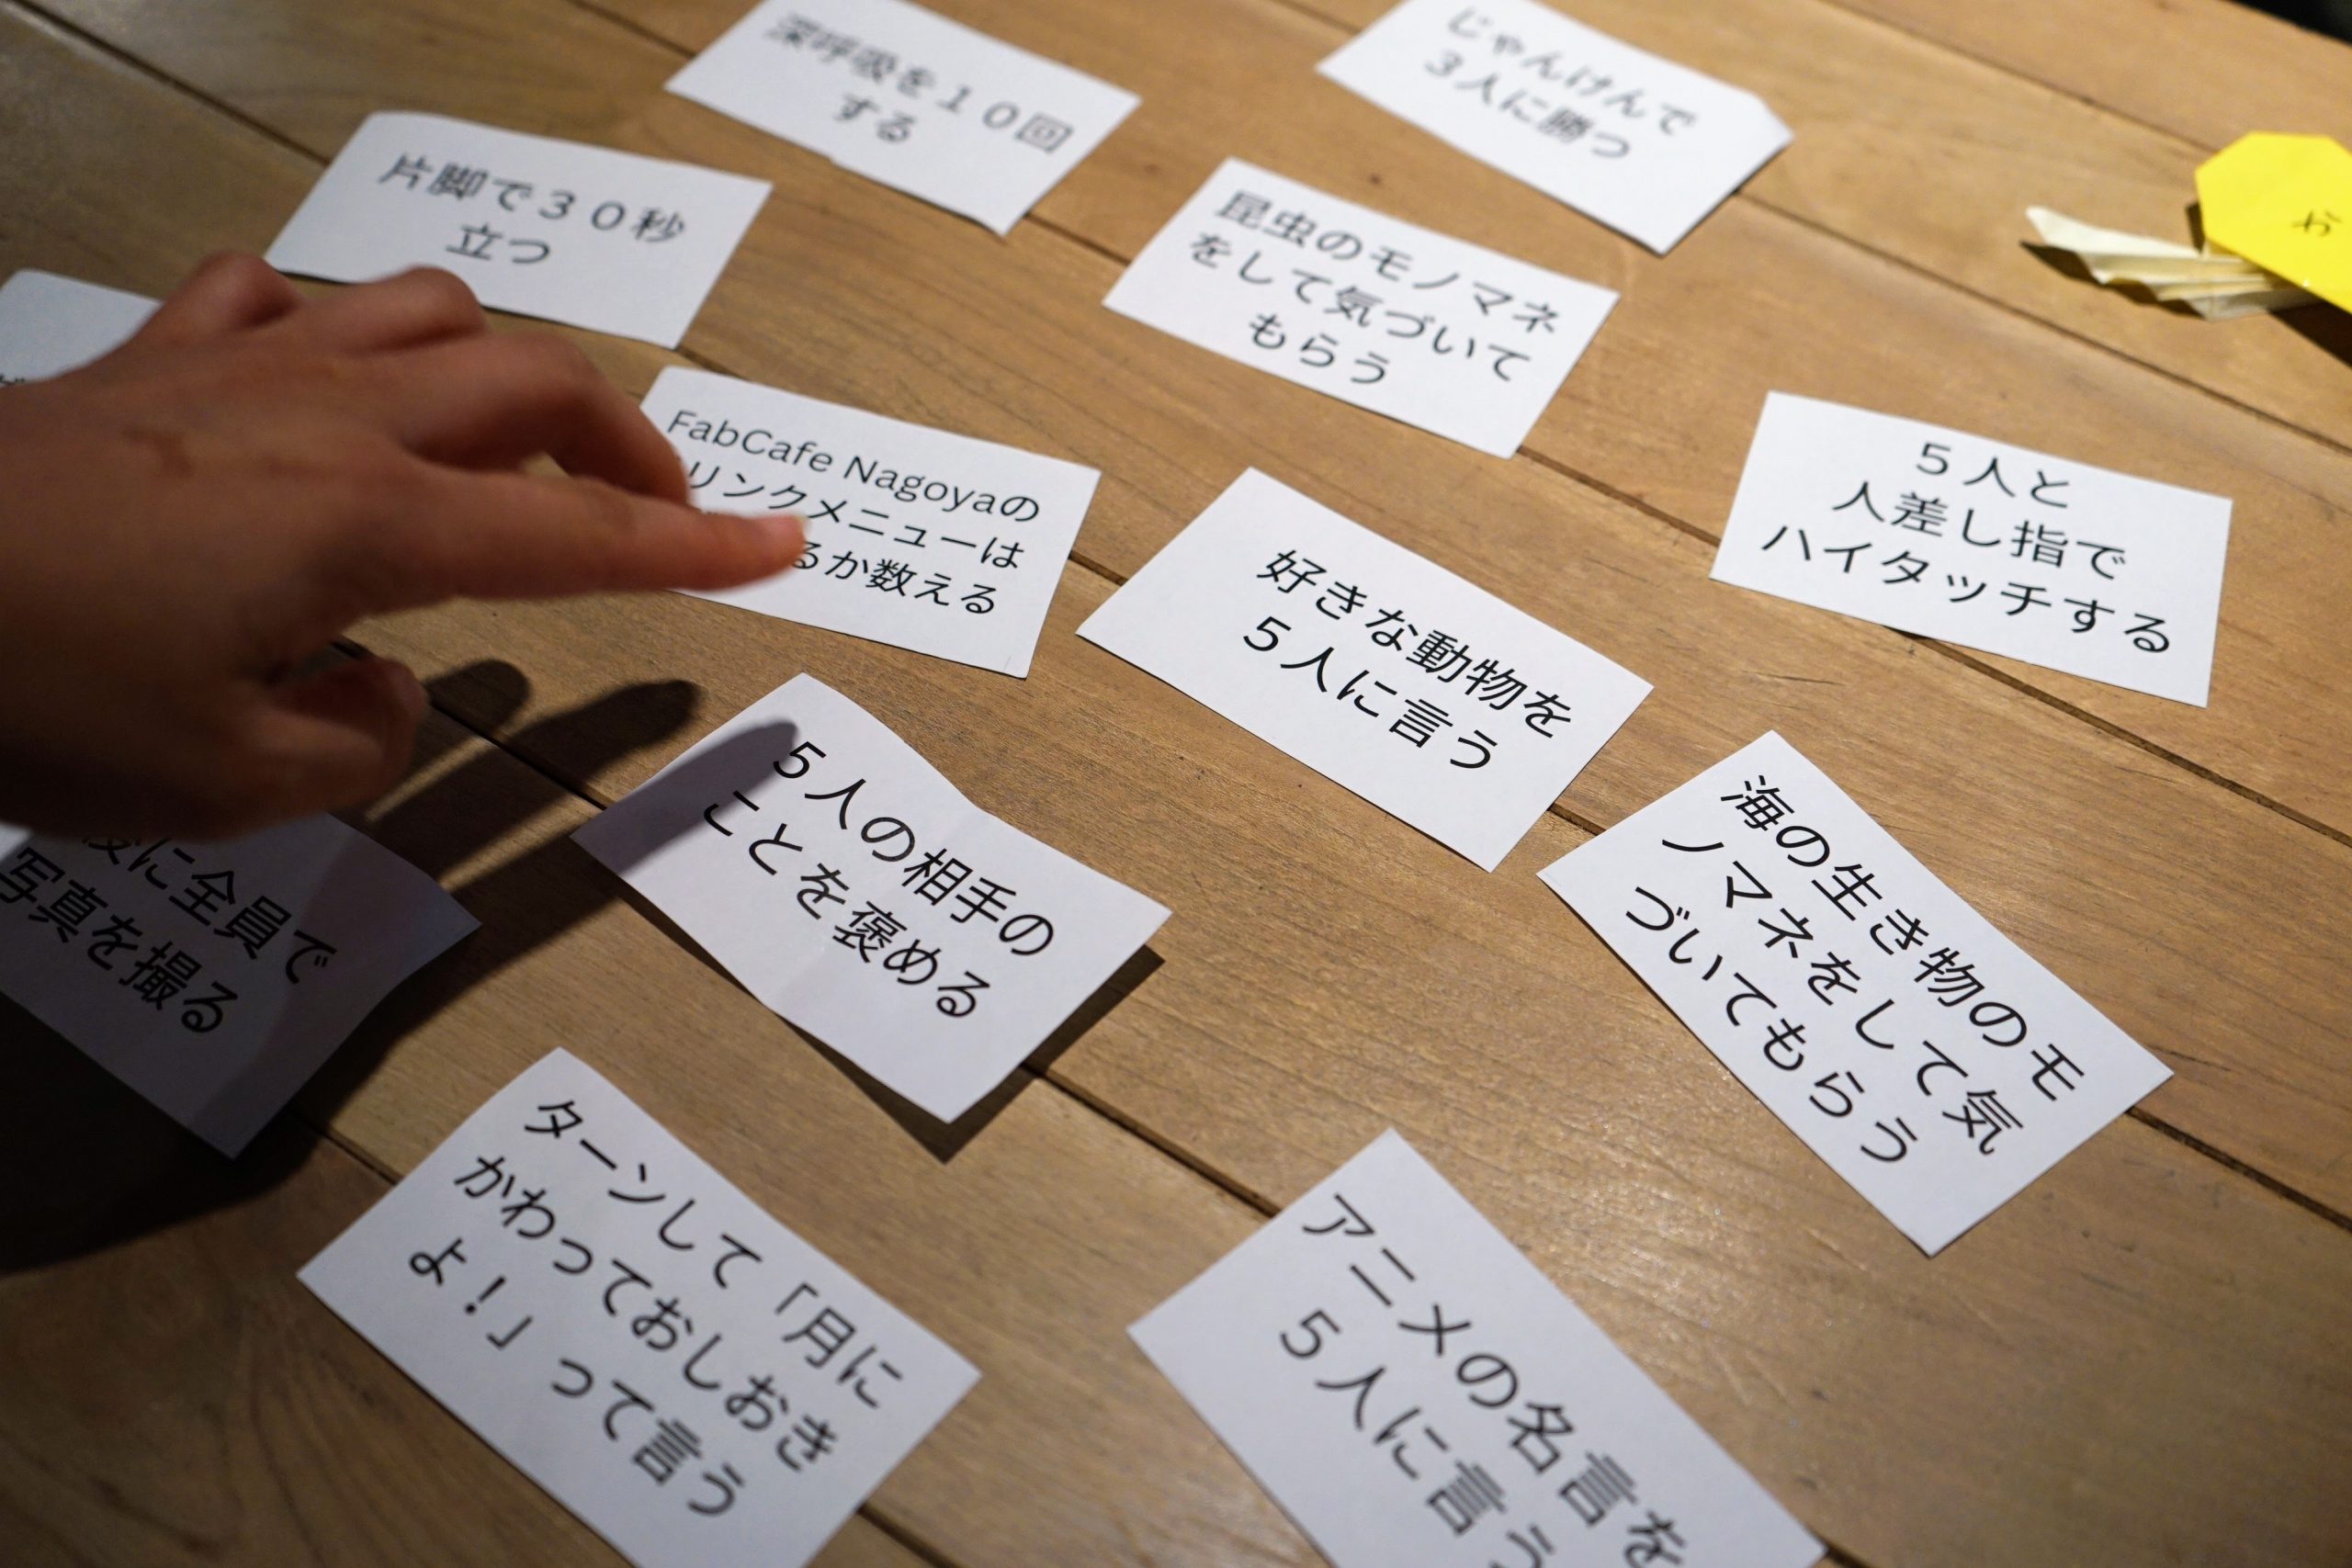 深呼吸を１０回
する
じゃんけんで
３人に勝つ
片脚で３０秒
立つ
昆虫のモノマネ
をして気づいて
もらう
FabCafe Nagoyaの
リンクメニューは
るか数える
５人と
人差し指で
ハイタッチする
好きな動物を
５人に言う
５人の相手の
ことを褒める
海の生き物のモ
ノマネをして気
づいてもらう
に全員で
写真を撮る
ターンして「月に
かわっておしおき
よ！」って言う
アニメの名言を
５人に言う